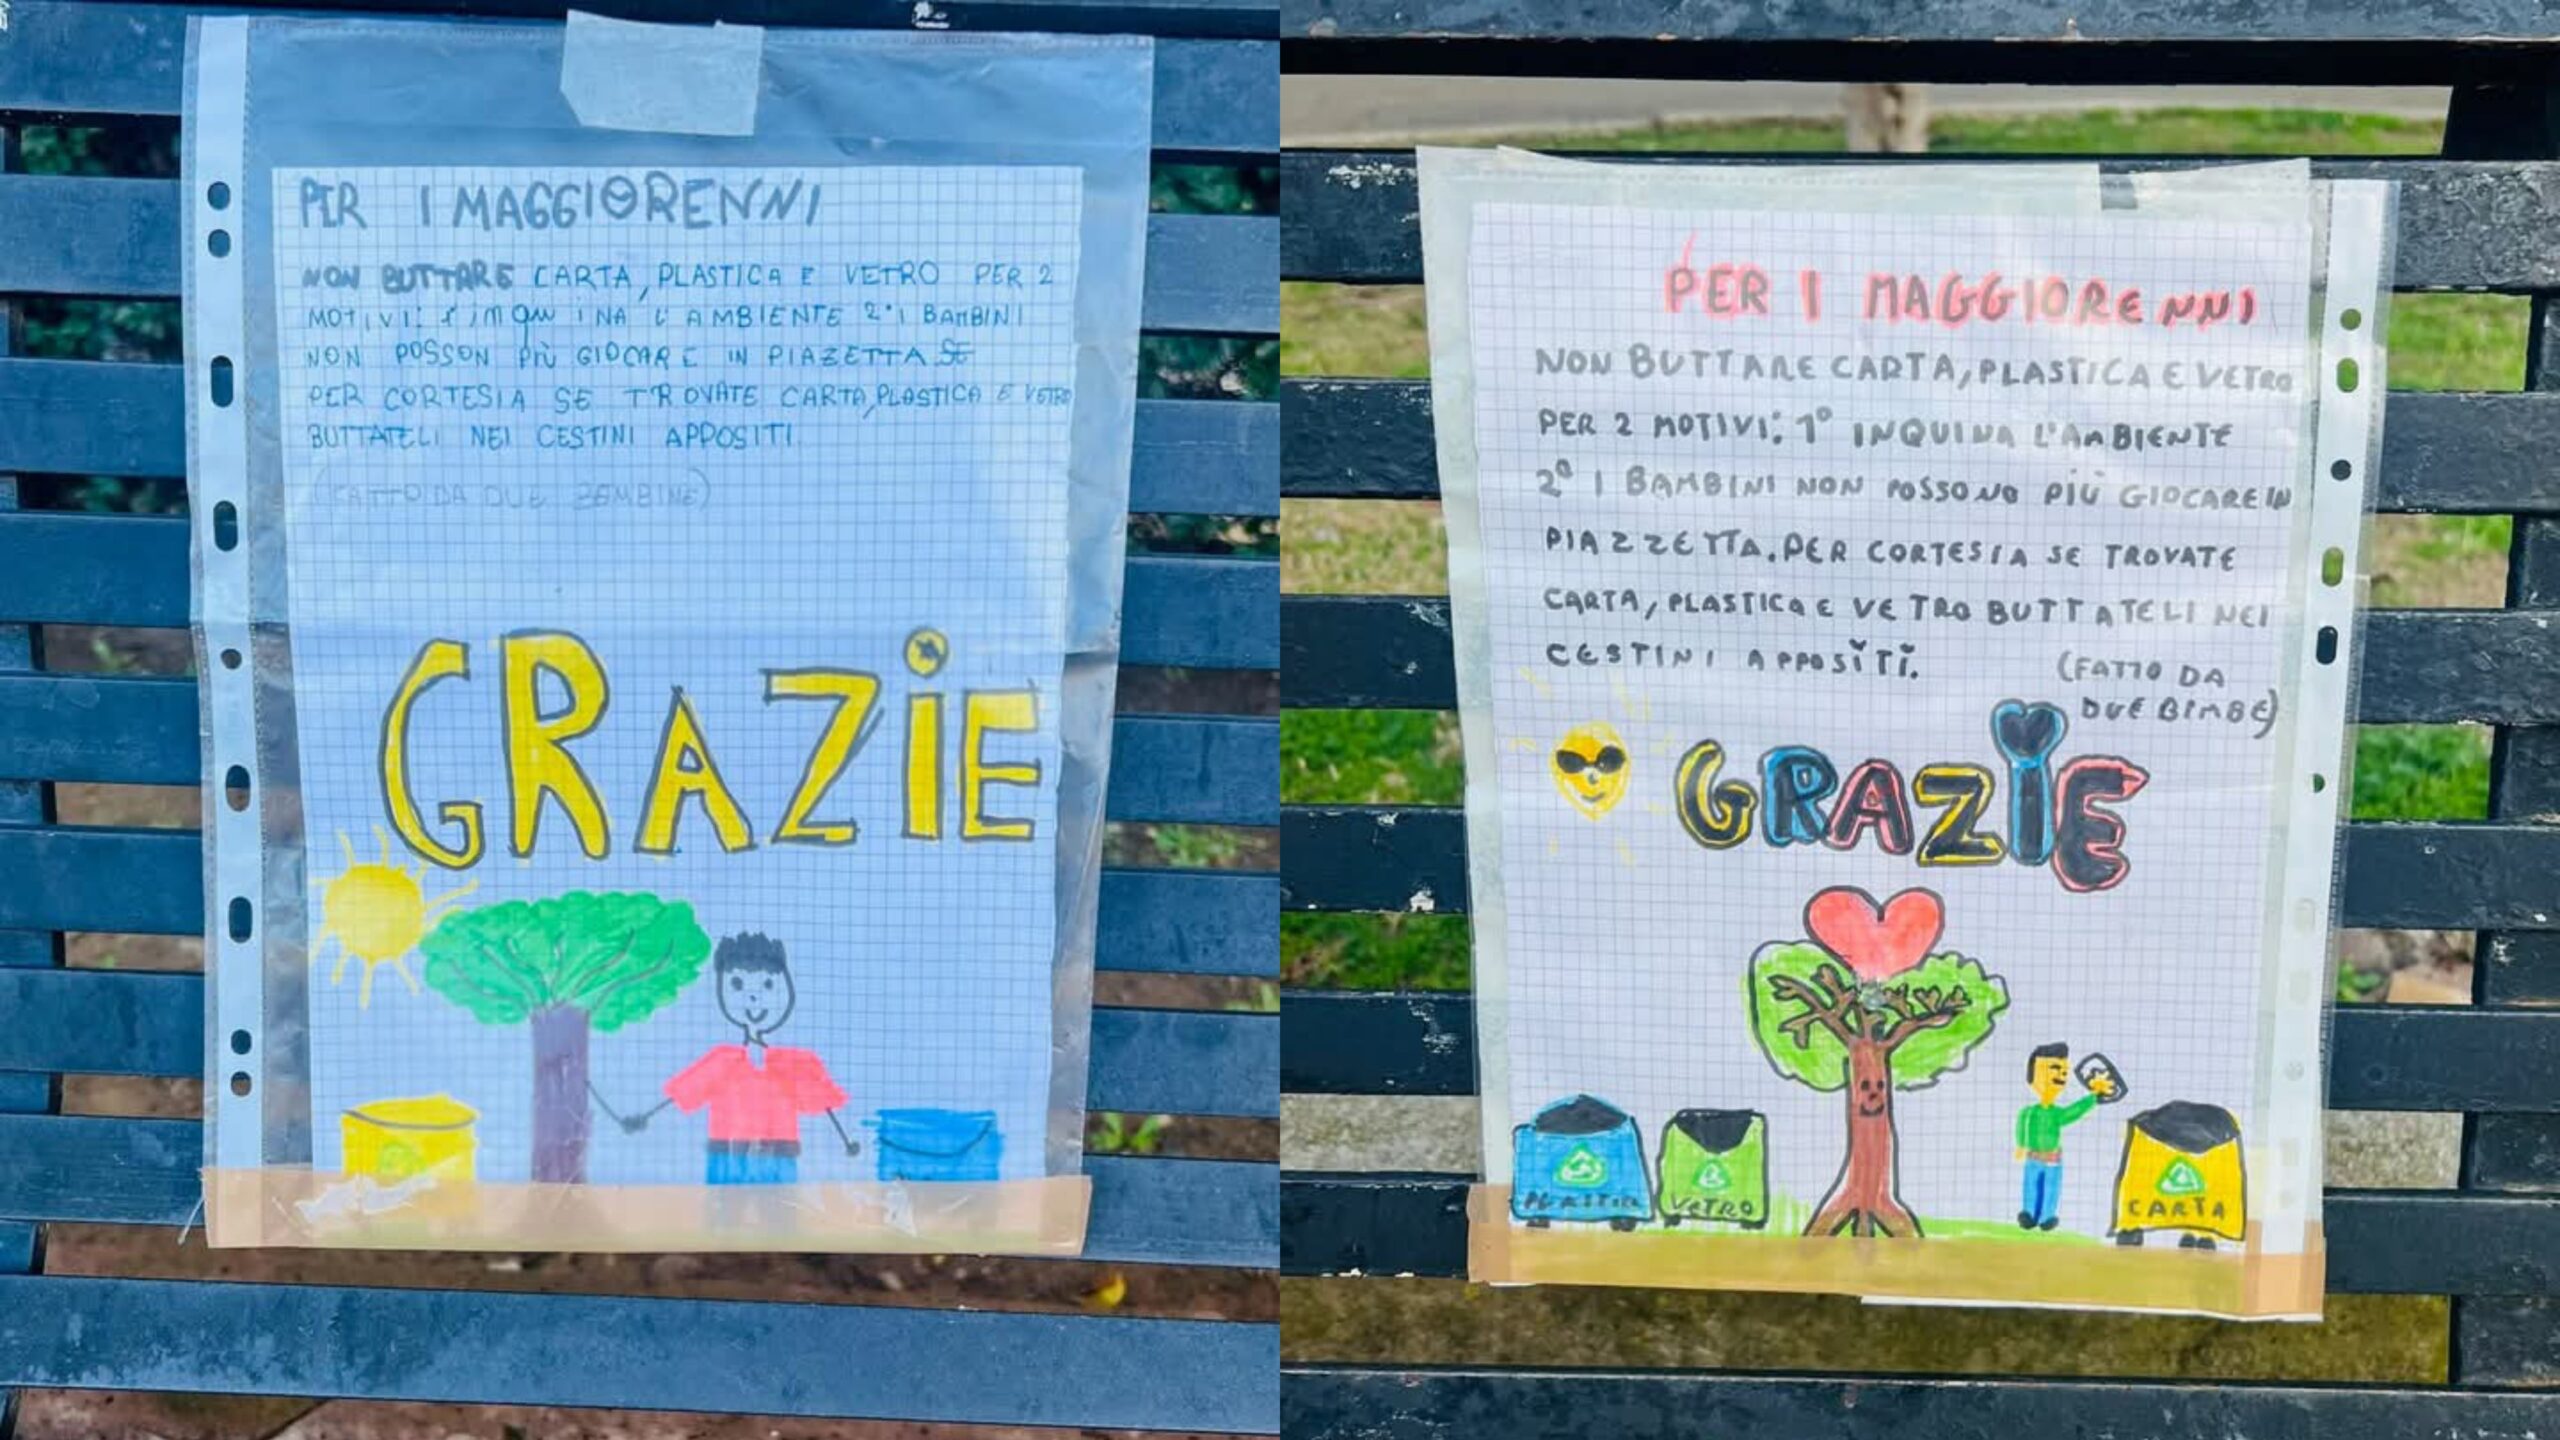 PER I MAGGIORENNI
NON BUTTARE CARTA, PLASTICA E VETRO PER 2
MOTIVI: 1° inquINA L'AMBIENTE 2° I BAMBINI
NON POSSON PIÙ GIOCARE IN PIAZETTA SE
PER CORTESIA SE TROVATE CARTA, PLASTICA E VETRO
BUTTATELI NEI CESTINI APPOSITI.
(FATTO DA DUE BEMBINE)
GRAZiE
PER I MAGGIORENNI
NON BUTTARE CARTA, PLASTICA E VETRO
PER 2 MOTIVI: 1° INQUINA L'AMBIENTE
2° I BAMBINI NON POSSONO PIÙ GIOCARE IN
PIAZZETTA. PER CORTESIA SE TROVATE
CARTA, PLASTICA E VETRO BUTTATELI NEI
CESTINI APPOSITI.
(FATTO DA
DUE BIMBE)
GRAZiE
PLASTICA
VETRO
CARTA